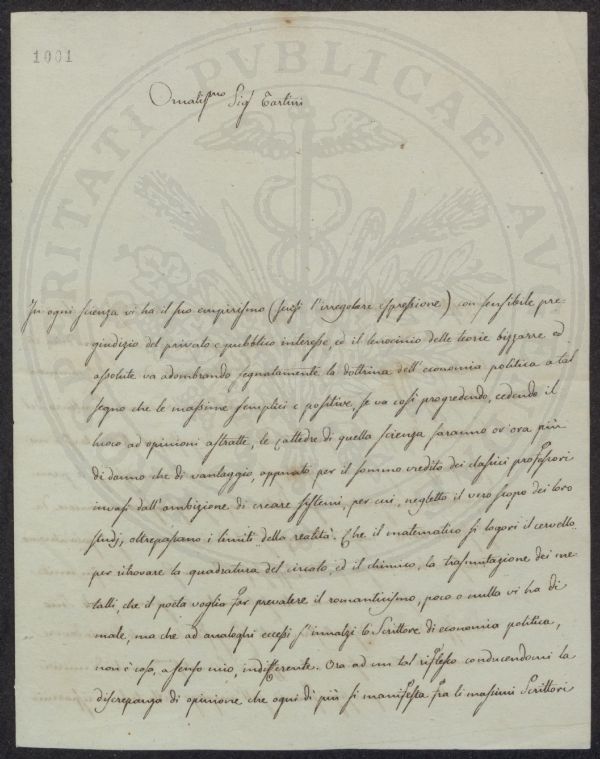 1001
PROSPERITATI PVBLICAE AV
Ornatiss.mo Sig.r Tartini
In ogni scienza vi ha il suo empirismo (scusi l'irregolare espressione) con sensibile pre-
giudizio del privato e pubblico interesse, ed il lenocinio delle teorie bizzarre ed
assolute va adombrando segnatamente la dottrina dell'economia politica a tal
segno che le massime semplici e positive, se va così progredendo, cedendo il
luoco ad opinioni astratte, le Cattedre di quella scienza saranno or ora più
di danno che di vantaggio, appunto per il sommo credito dei classici professori
invasi dall'ambizione di creare sistemi, per cui, negletto il vero scopo dei loro
studj, oltrepassano i limiti della realità. Che il matematico si logori il cervello
per ritrovare la quadratura del circolo, ed il chimico, la trasmutazione dei me-
talli, che il poeta voglia far prevalere il romanticismo, poco o nulla vi ha di
male, ma che ad analoghi eccessi s'innalzi lo Scrittore di economia politica,
non è cosa, a senso mio, indifferente. Ora ad un tal riflesso conducendomi la
discrepanza di opinione che ogni dì più si manifesta fra li massimi Scrittori